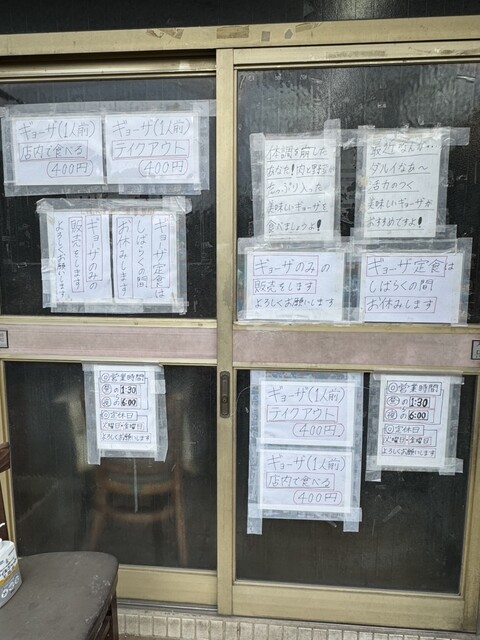 ギョーザ(1人前)
店内で食べる
400円
ギョーザ(1人前)
テイクアウト
400円
ギョーザ定食は
しばらくの間
お休みします
ギョーザのみの
販売をします
よろしくお願いします
体調を崩した
あなた!肉と野菜
たっぷり入った
美味しいギョーザを
食べましょうよ!
最近なんか…
ダルイなあ〜
活力のつく
美味しいギョーザが
おすすめですよ!
ギョーザのみの
販売をします
よろしくお願いします
ギョーザ定食は
しばらくの間
お休みします
◎営業時間
昼の1:30
夜の6:00
◎定休日
火曜日・金曜日
よろしくお願いします
ギョーザ(1人前)
テイクアウト
400円
ギョーザ(1人前)
店内で食べる
400円
◎営業時間
昼の1:30
夜の6:00
◎定休日
火曜日・金曜日
よろしくお願いします